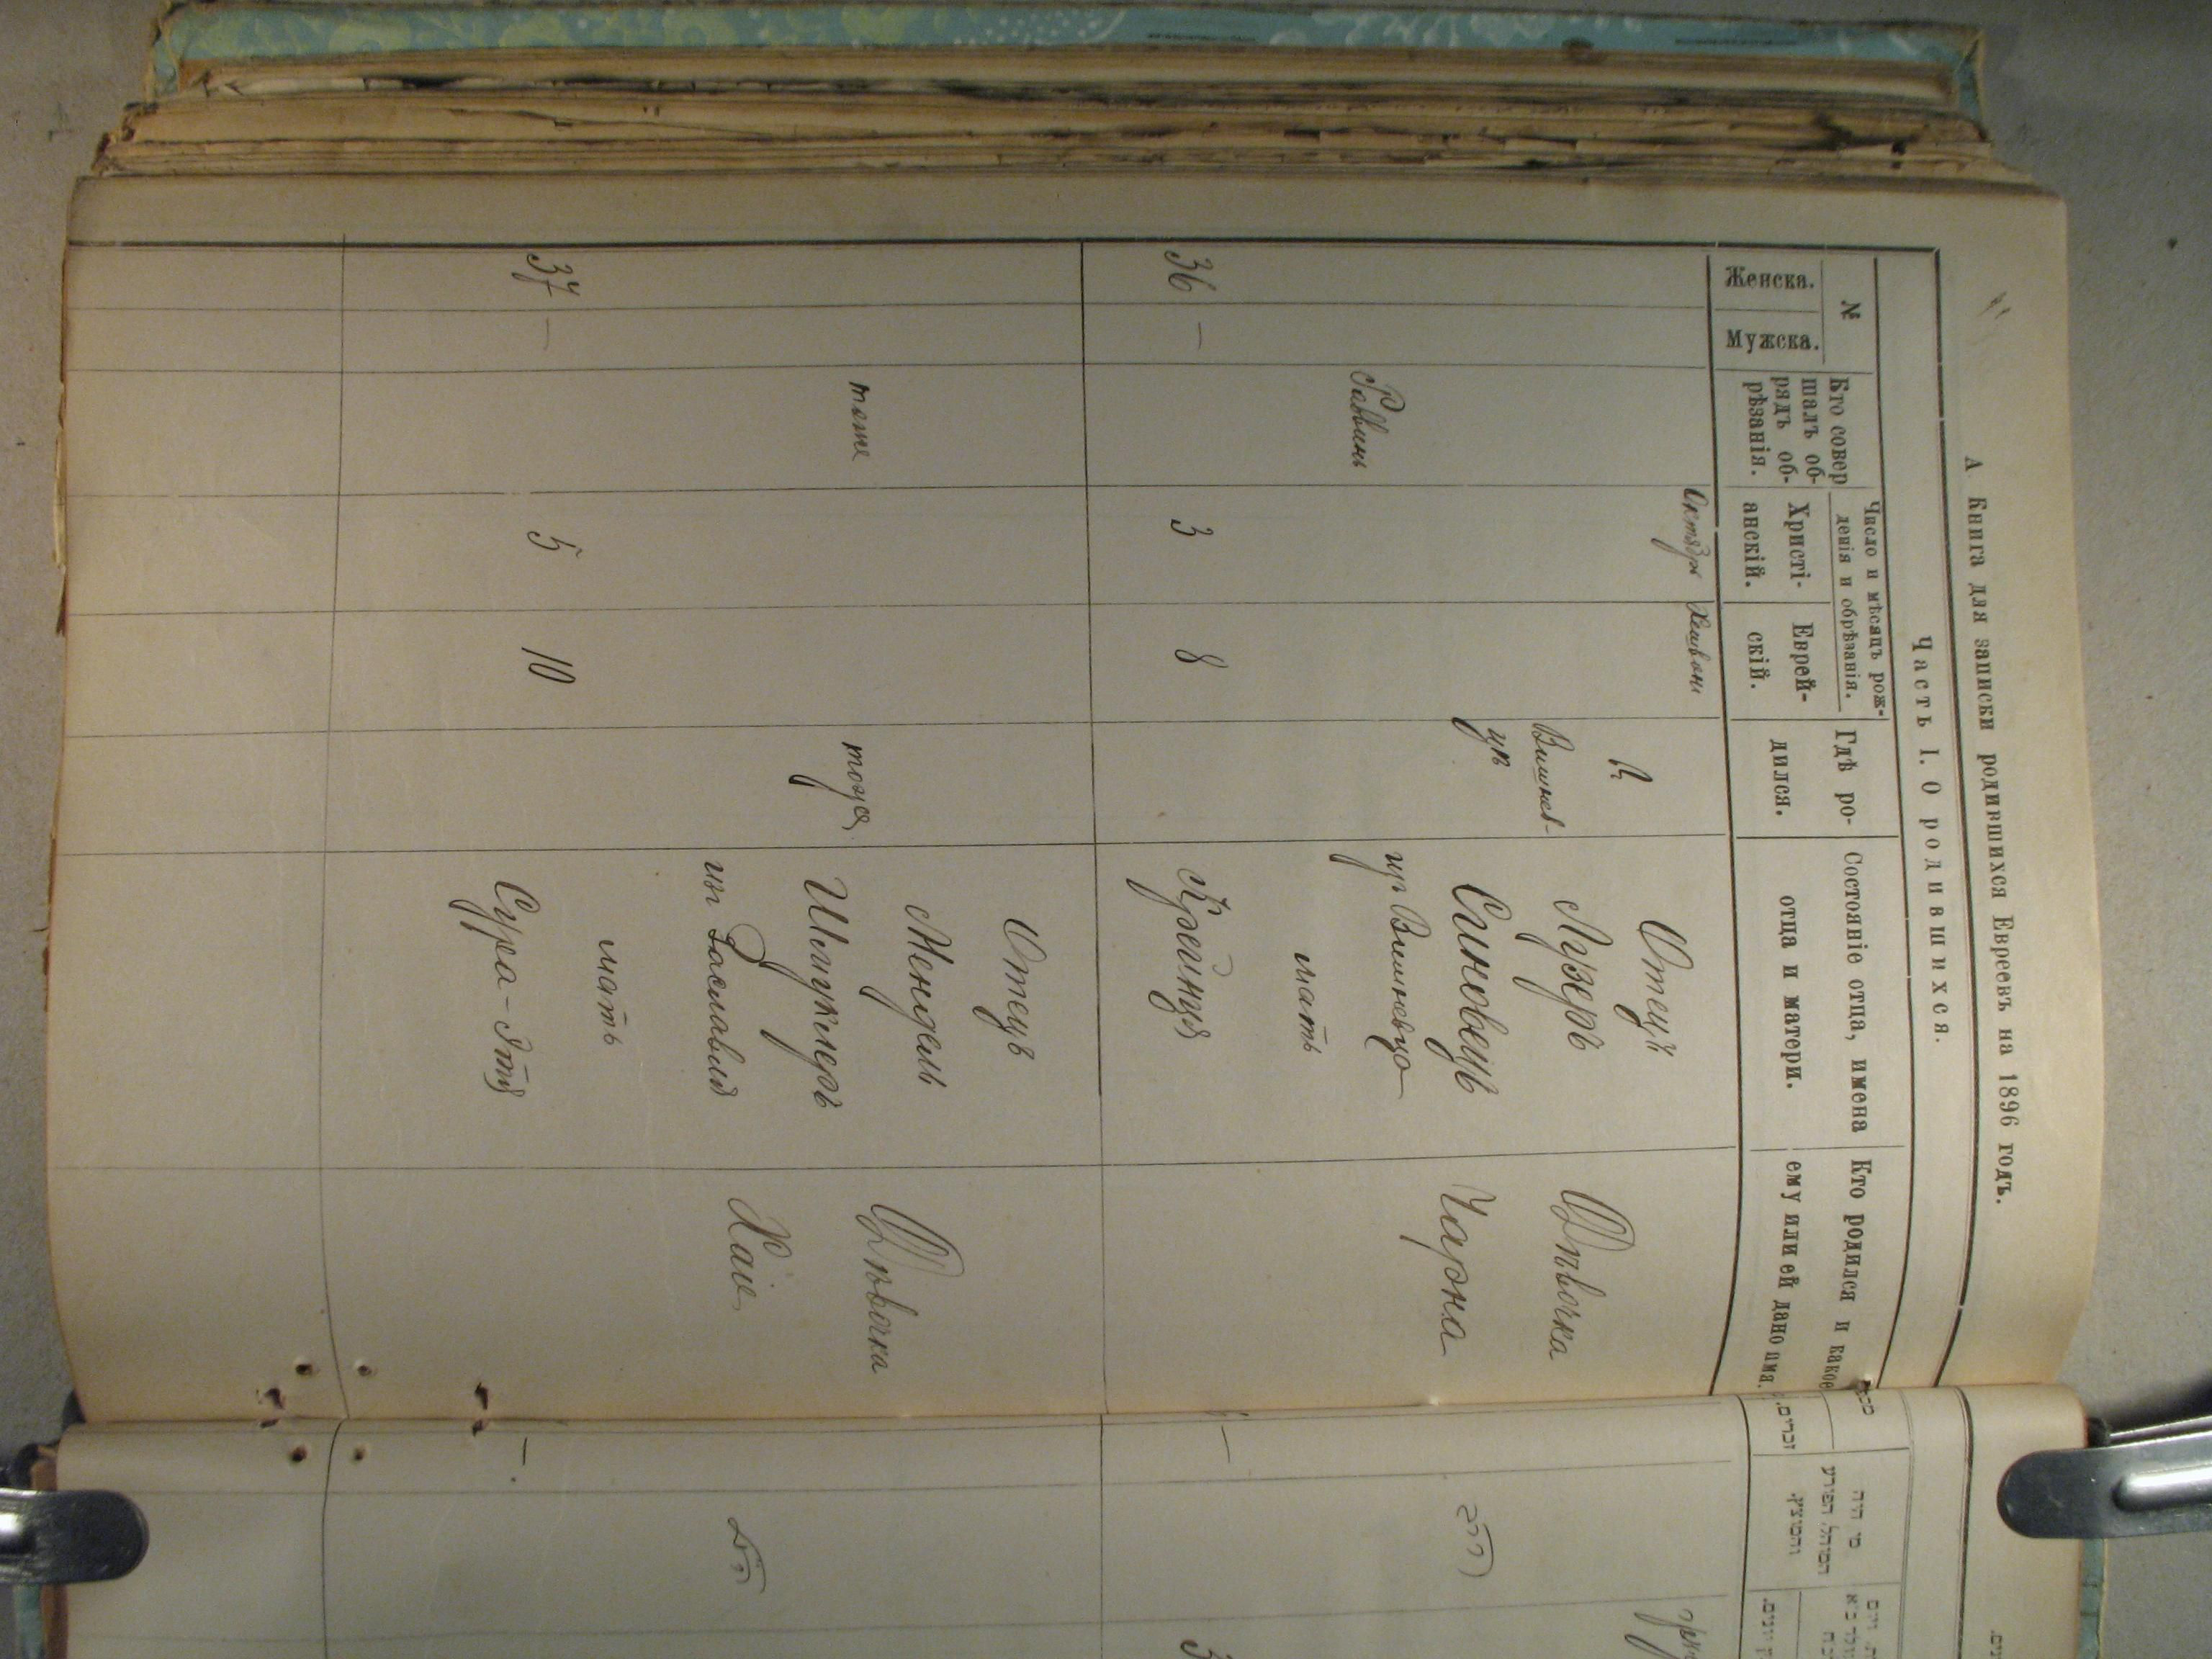 А Книга для записки родившихся Евреевъ на 1896 годъ.
Часть I. О родившихся.
№
Женска.
Мужска.
Кто совер
шалъ об-
рядъ об-
рѣзанія.
Число и мѣсяцъ рож-
денія и обрѣзанія.
Христі-
анскій.
Еврей-
скій.
Гдѣ ро-
дился.
Состояніе отца, имена
отца и матери.
Кто родился и какое
ему или ей дано имя.
Октябрь
Хешвонъ
36
—
Раввинъ
3
8
В
Вишнев-
цѣ
Отецъ
Лузеръ
Синовецъ
изъ Вишневца
мать
Крейнця
Дѣвочка
Чарна
37
—
тоже
5
10
тоже
Отецъ
Мендель
изъ Заславля
мать
Сура-Этя
Дѣвочка
Хаіе
וכרים.
מי היה
המוהל הפורע
והמוצץ.
הרב